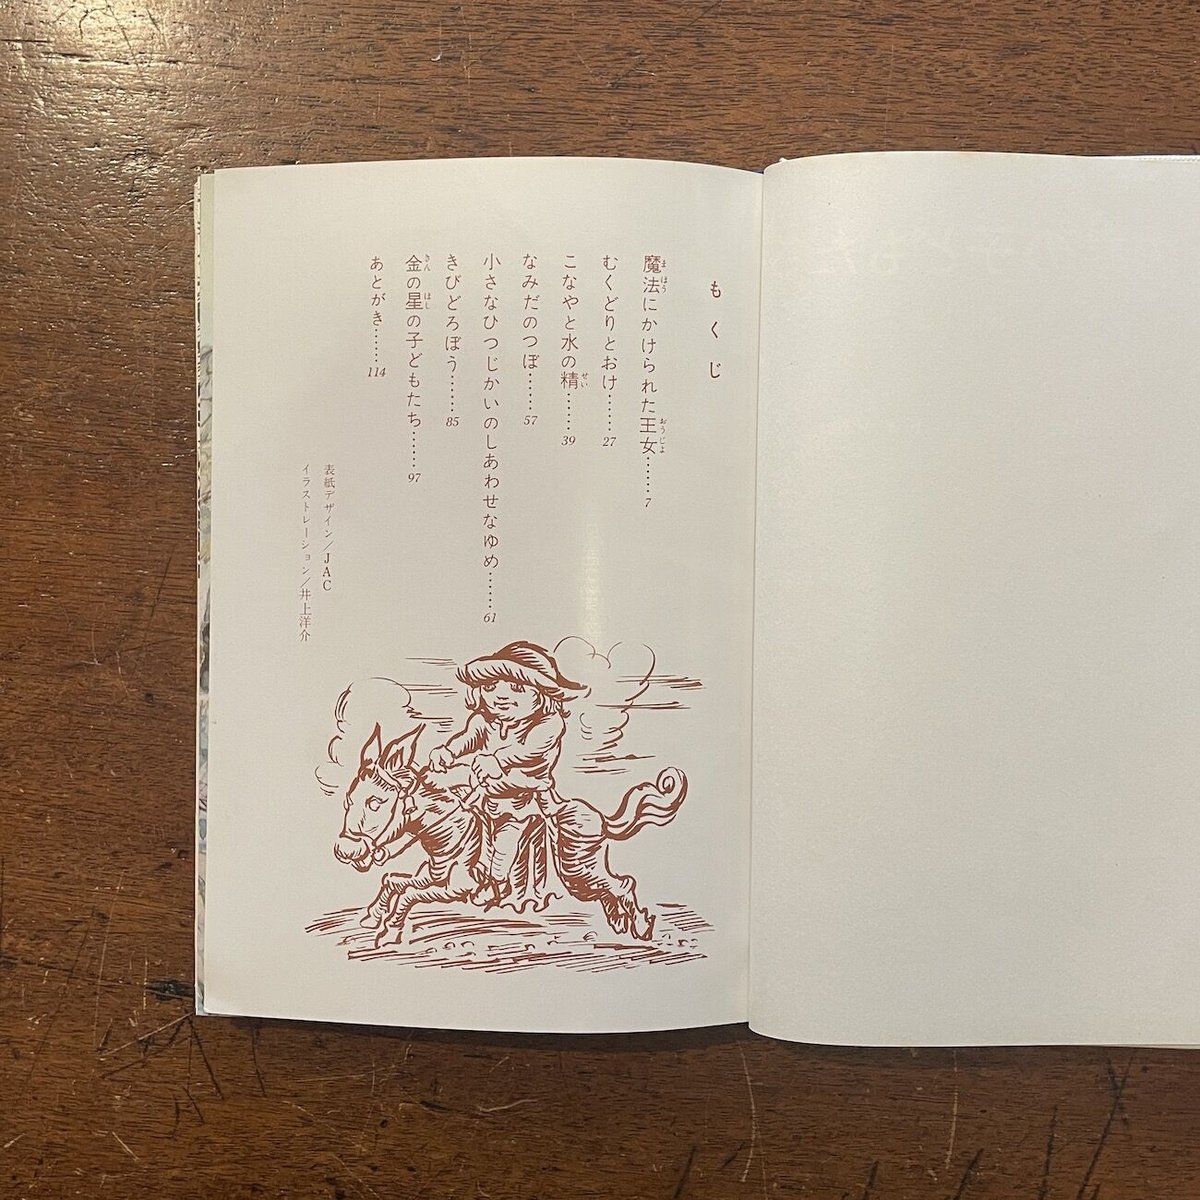 もくじ
魔法にかけられた王女……7
むくどりとおけ……27
こなやと水の精……39
なみだのつぼ……57
小さなひつじかいのしあわせなゆめ……61
きびどろぼう……85
金の星の子どもたち……97
あとがき……114
表紙デザイン／JAC
イラストレーション／井上洋介